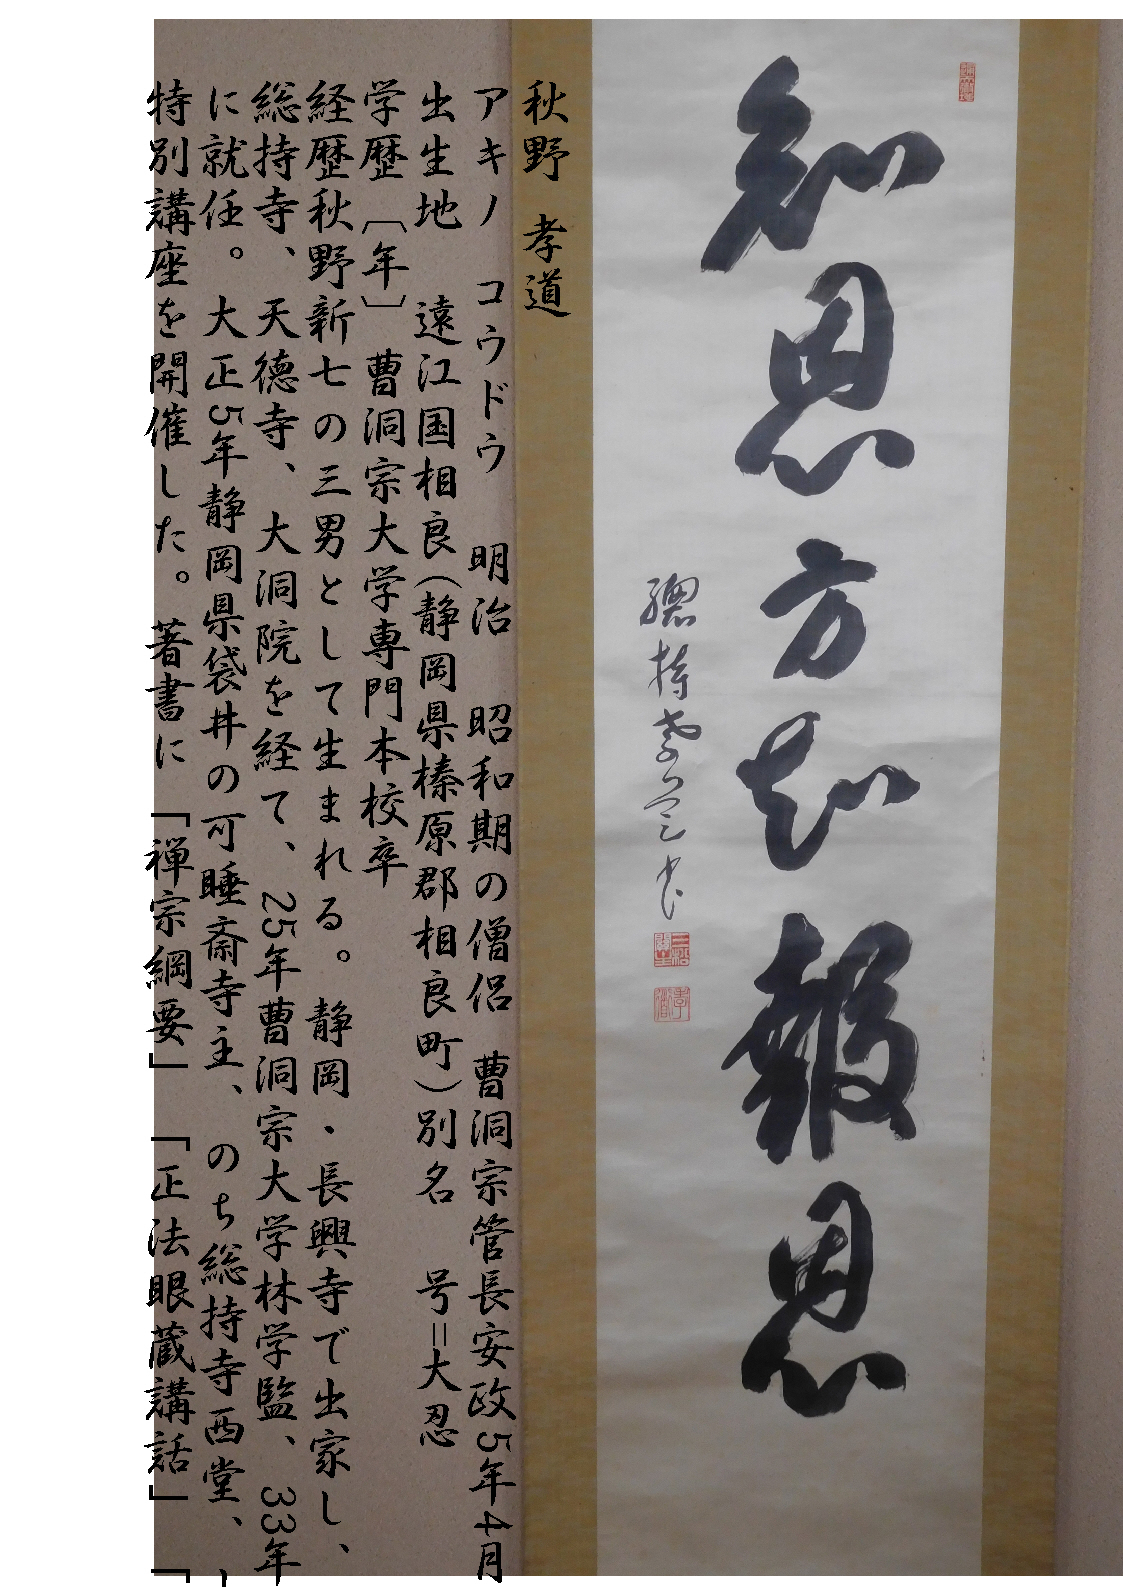 知恩方知報恩
總持孝道書
秋野 孝道
アキノ コウドウ 明治 昭和期の僧侶 曹洞宗管長安政5年4月
出生地 遠江国相良(静岡県榛原郡相良町)別名 号=大忍
学歴〔年〕 曹洞宗大学専門本校卒
経歴秋野新七の三男として生まれる。静岡・長興寺で出家し、
総持寺、天徳寺、大洞院を経て、25年曹洞宗大学林学監、33年
に就任。大正5年静岡県袋井の可睡斎寺主、のち総持寺西堂、
特別講座を開催した。著書に「禅宗綱要」「正法眼蔵講話」「